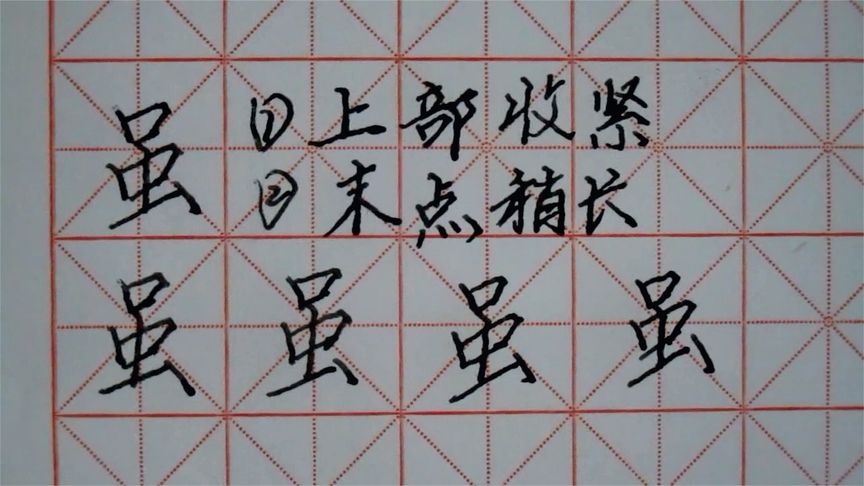 虽 ①上部收紧
②末点稍长
虽 虽 虽 虽